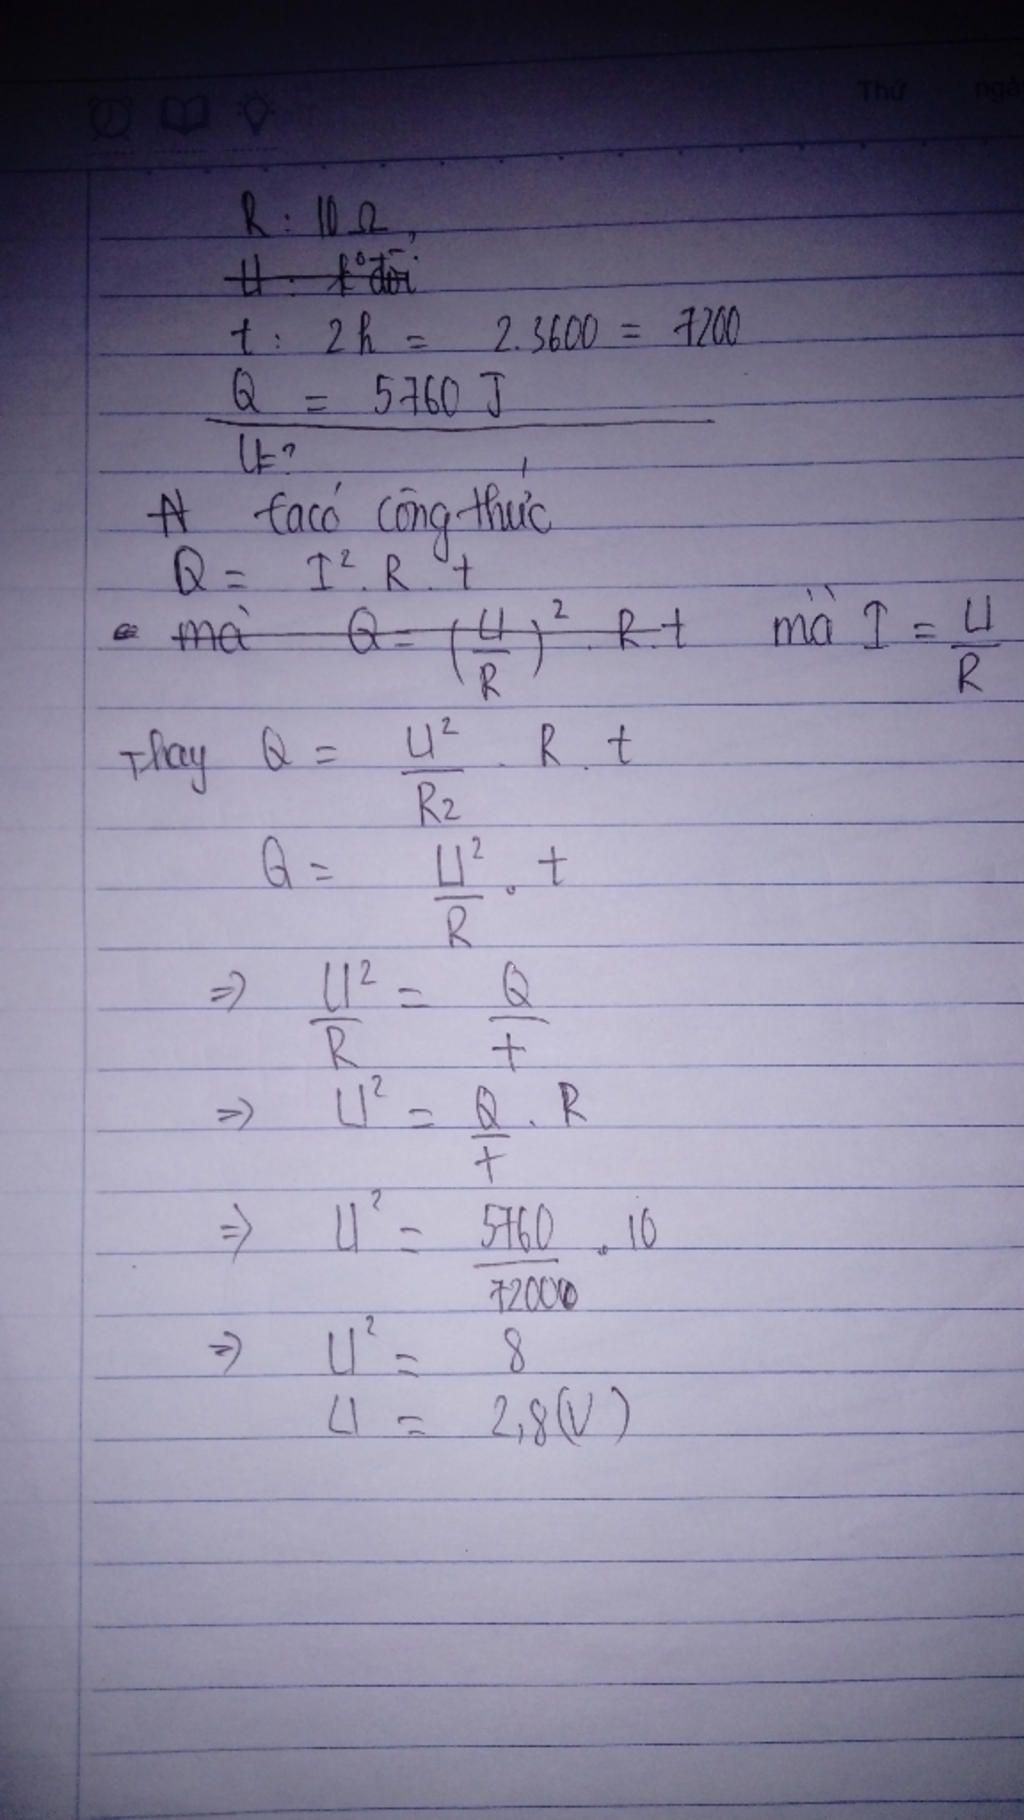 Thứ ngà
R : 10 Ω
U : k° đổi
t : 2h = 2.3600 = 7200
Q = 5760 J
U=?
ta có công thức
Q = I². R . t
mà Q = (U/R)² . R.t mà I = U/R
Thay Q = U²/R2 . R . t
Q = U²/R . t
=> U²/R = Q/t
=> U² = Q/t . R
=> U² = 5760/72000 . 10
=> U² = 8
U = 2,8(V)